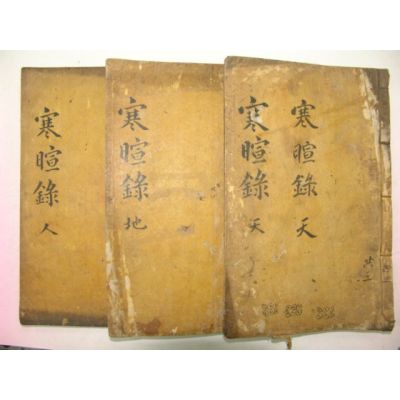 寒暄錄 天
寒暄錄 天
共三
寒暄錄 地
寒暄錄 人